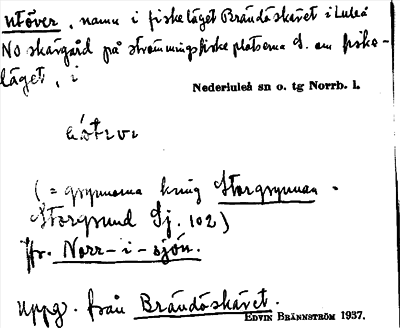 utöver, namn i fiskeläget Brändöskäret i Luleå
No skärgård på strömmingsfiskeplatserna S. om fiske-
läget, i
Nederluleå sn o. tg Norrb. l.
(= grynnorna kring Storgrynnan.
Storgrund Sj. 102)
Jfr. Norr-i-sjön.
uppg. från Brändöskäret.
EDVIN BRÄNNSTRÖM 1937.